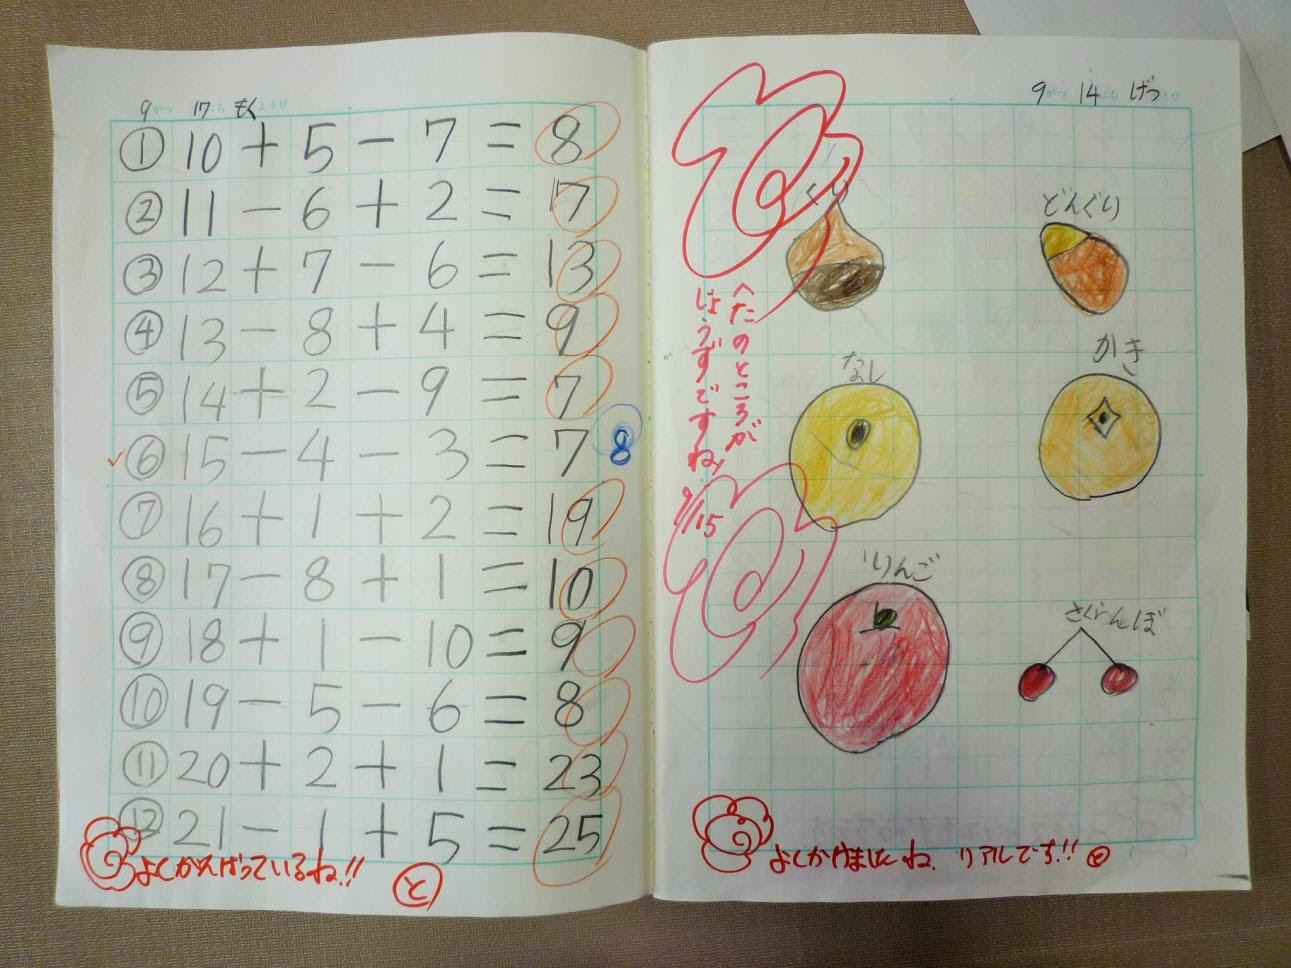 9がつ 17にち もくようび
① 10 + 5 - 7 = 8
② 11 - 6 + 2 = 7
③ 12 + 7 - 6 = 13
④ 13 - 8 + 4 = 9
⑤ 14 + 2 - 9 = 7
⑥ 15 - 4 - 3 = 7 8
⑦ 16 + 1 + 2 = 19
⑧ 17 - 8 + 1 = 10
⑨ 18 + 1 - 10 = 9
⑩ 19 - 5 - 6 = 8
⑪ 20 + 2 + 1 = 23
⑫ 21 - 1 + 5 = 25
よくがんばっているね!!
と
9がつ 14にち げつようび
くり
どんぐり
なし
かき
りんご
さくらんぼ
へたのところが
じょうずですね!
9/15
よくかけましたね。リアルです!! と